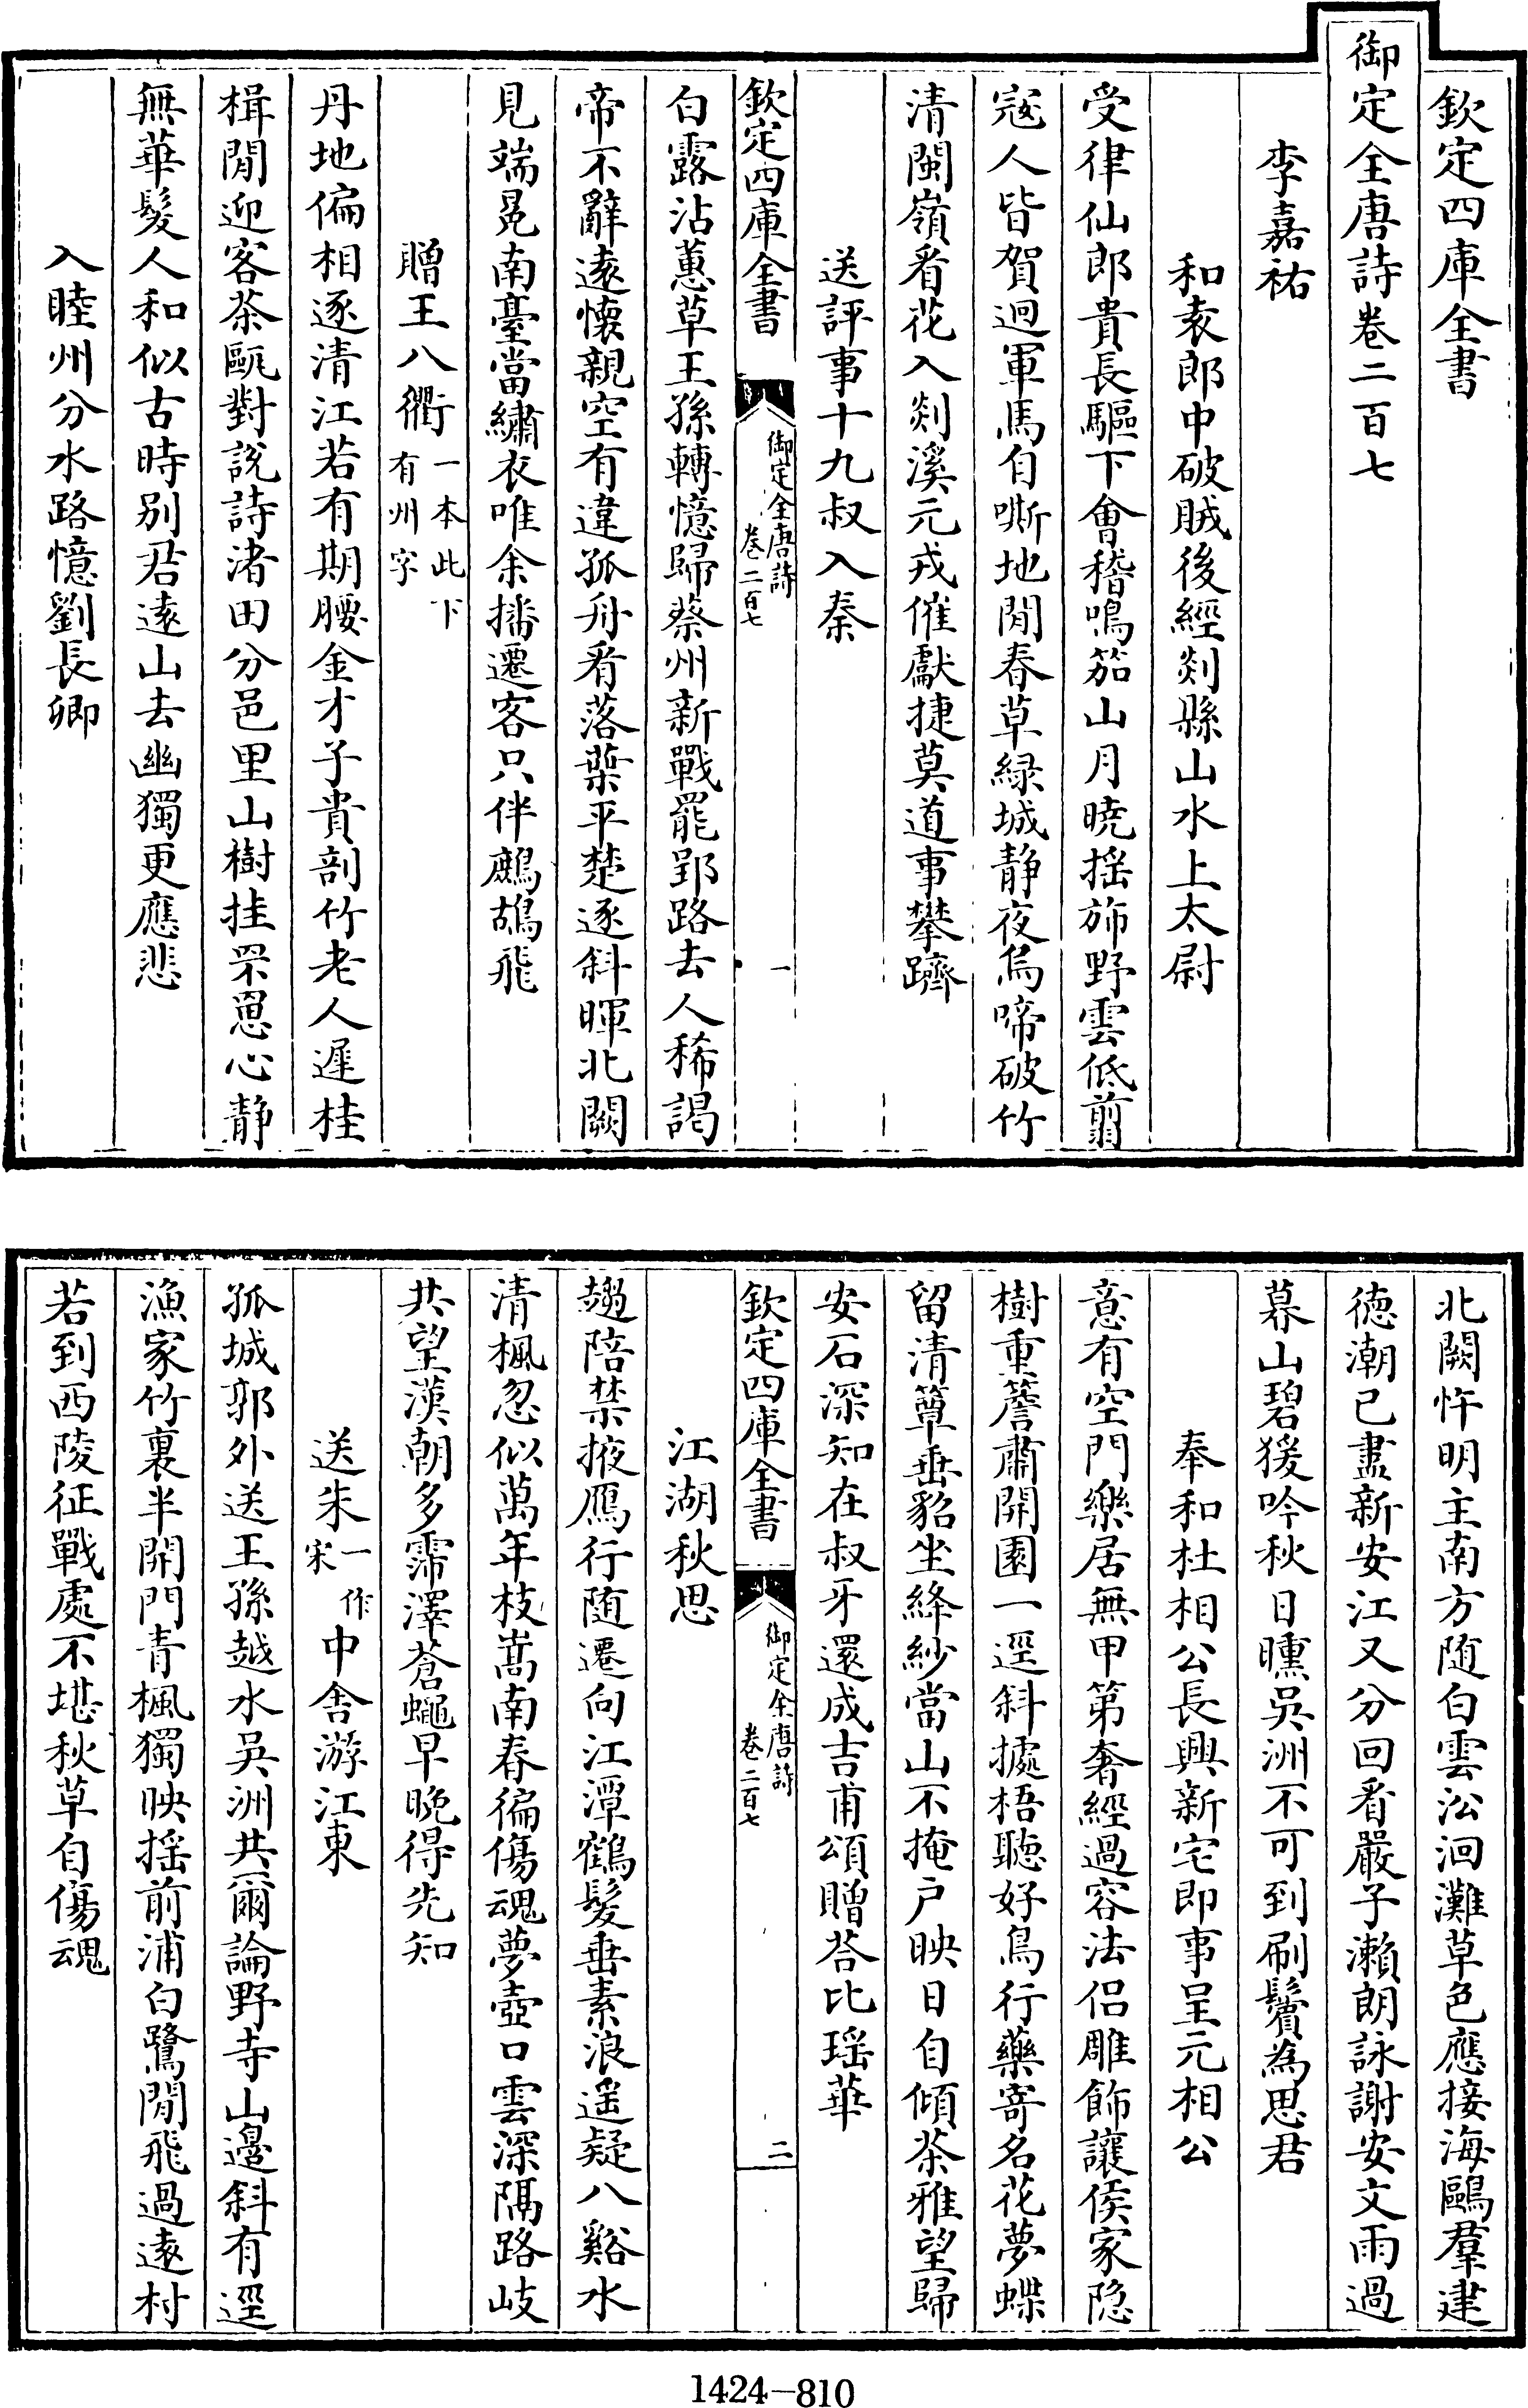 欽定四庫全書
御定全唐詩卷二百七
李嘉祐
和袁郎中破賊後經剡縣山水上太尉
受律仙郎貴長驅下會稽鳴笳山月曉揺斾野雲低翦
寇人皆賀迴軍馬自嘶地閒春草緑城靜夜烏啼破竹
清閩嶺看花入剡溪元戎催獻捷莫道事攀躋
送評事十九叔入秦
欽定四庫全書 御定全唐詩 卷二百七 一
白露沾蕙草王孫轉憶歸蔡州新戰罷郢路去人稀謁
帝不辭遠懷親空有違孤舟看落葉平楚逐斜暉北闕
見端冕南臺當繡衣唯余播遷客只伴鷓鴣飛
贈王八衢一本此下有州字
丹地偏相逐清江若有期腰金才子貴剖竹老人遲桂
楫閒迎客茶甌對説詩渚田分邑里山樹挂罘罳心靜
無華髮人和似古時别君逺山去幽獨更應悲
入睦州分水路憶劉長卿
北闕忤明主南方随白雲㳂洄灘草色應接海鷗羣建
德潮已盡新安江又分回看嚴子瀨朗詠謝安文雨過
暮山碧猨吟秋日曛吳洲不可到刷鬢為思君
奉和杜相公長興新宅即事呈元相公
意有空門樂居無甲第奢經過容法侣雕飾讓侯家隐
樹重簷肅開園一逕斜據梧聽好鳥行藥寄名花夢蝶
留清簟垂貂坐絳紗當山不掩户映日自傾茶雅望歸
安石深知在叔牙還成吉甫頌贈荅比瑶華
欽定四庫全書 御定全唐詩 卷二百七 二
江湖秋思
趨陪禁掖鴈行随遷向江潭鶴髮垂素浪遥疑八谿水
清楓忽似萬年枝嵩南春徧傷魂夢壺口雲深隔路岐
共望漢朝多霈澤蒼蠅早晚得先知
送朱一作宋中舍游江東
孤城郭外送王孫越水吳洲共爾論野寺山邊斜有逕
漁家竹裏半開門青楓獨映揺前浦白鷺閒飛過逺村
若到西陵征戰處不堪秋草自傷魂
1424—810